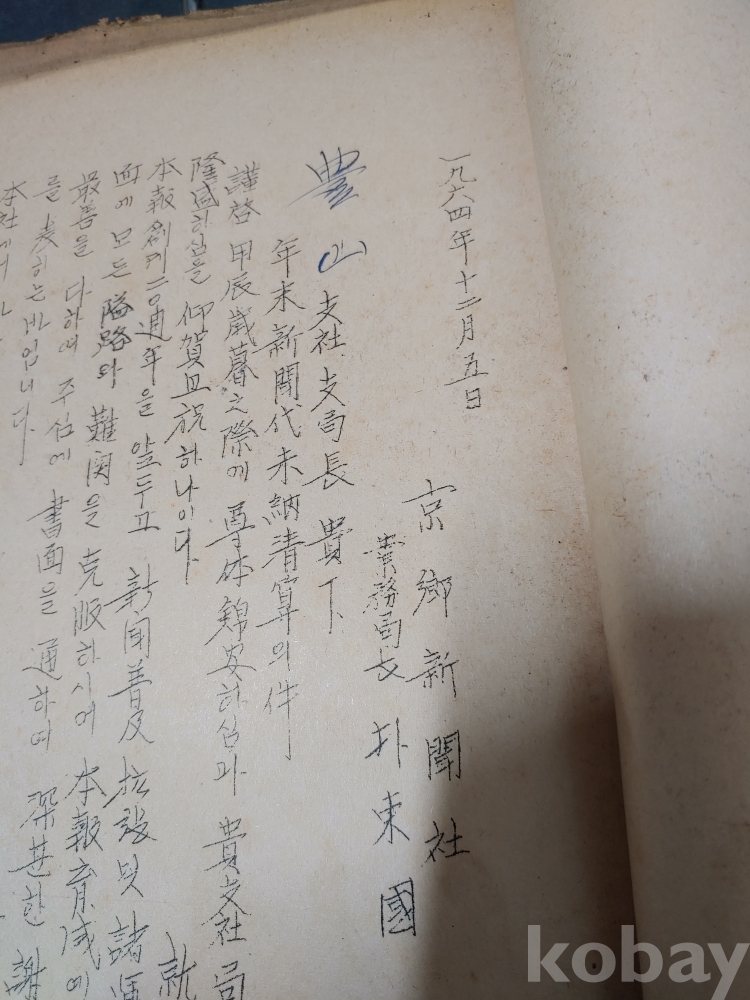 一九六四年十二月五日
京鄕新聞社
業務局長 朴東國
豊山支社 支局長 貴下
年末新聞代未納清算의件
謹啓 甲辰歲暮之際에 尊体錦安하심과 貴支社局
隆盛하심을 仰賀且祝하나이다 就
本報創刊 通年을 앞두고 新聞普及 拡張및 諸
面에 모든 隘路와 難関을 克服하시여 本報育成에
最善을 다하여 주심에 書面을 通하여 深甚한 謝
를 表하는바입니다
本社에서
kobay